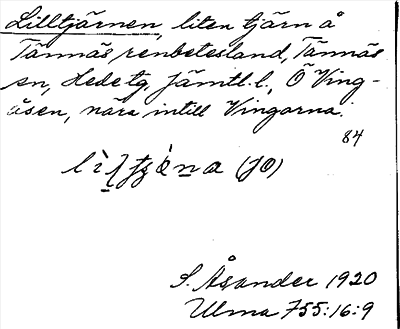 Lilltjärnen, liten tjärn å
Tännäs renbetesland, Tännäs
sn, Hede tg. Jämtl. l., Ö Ving-
åsen, nära intill Vingarna.
84
(JO)
S. Åsander 1920
Ulma 755:16:9